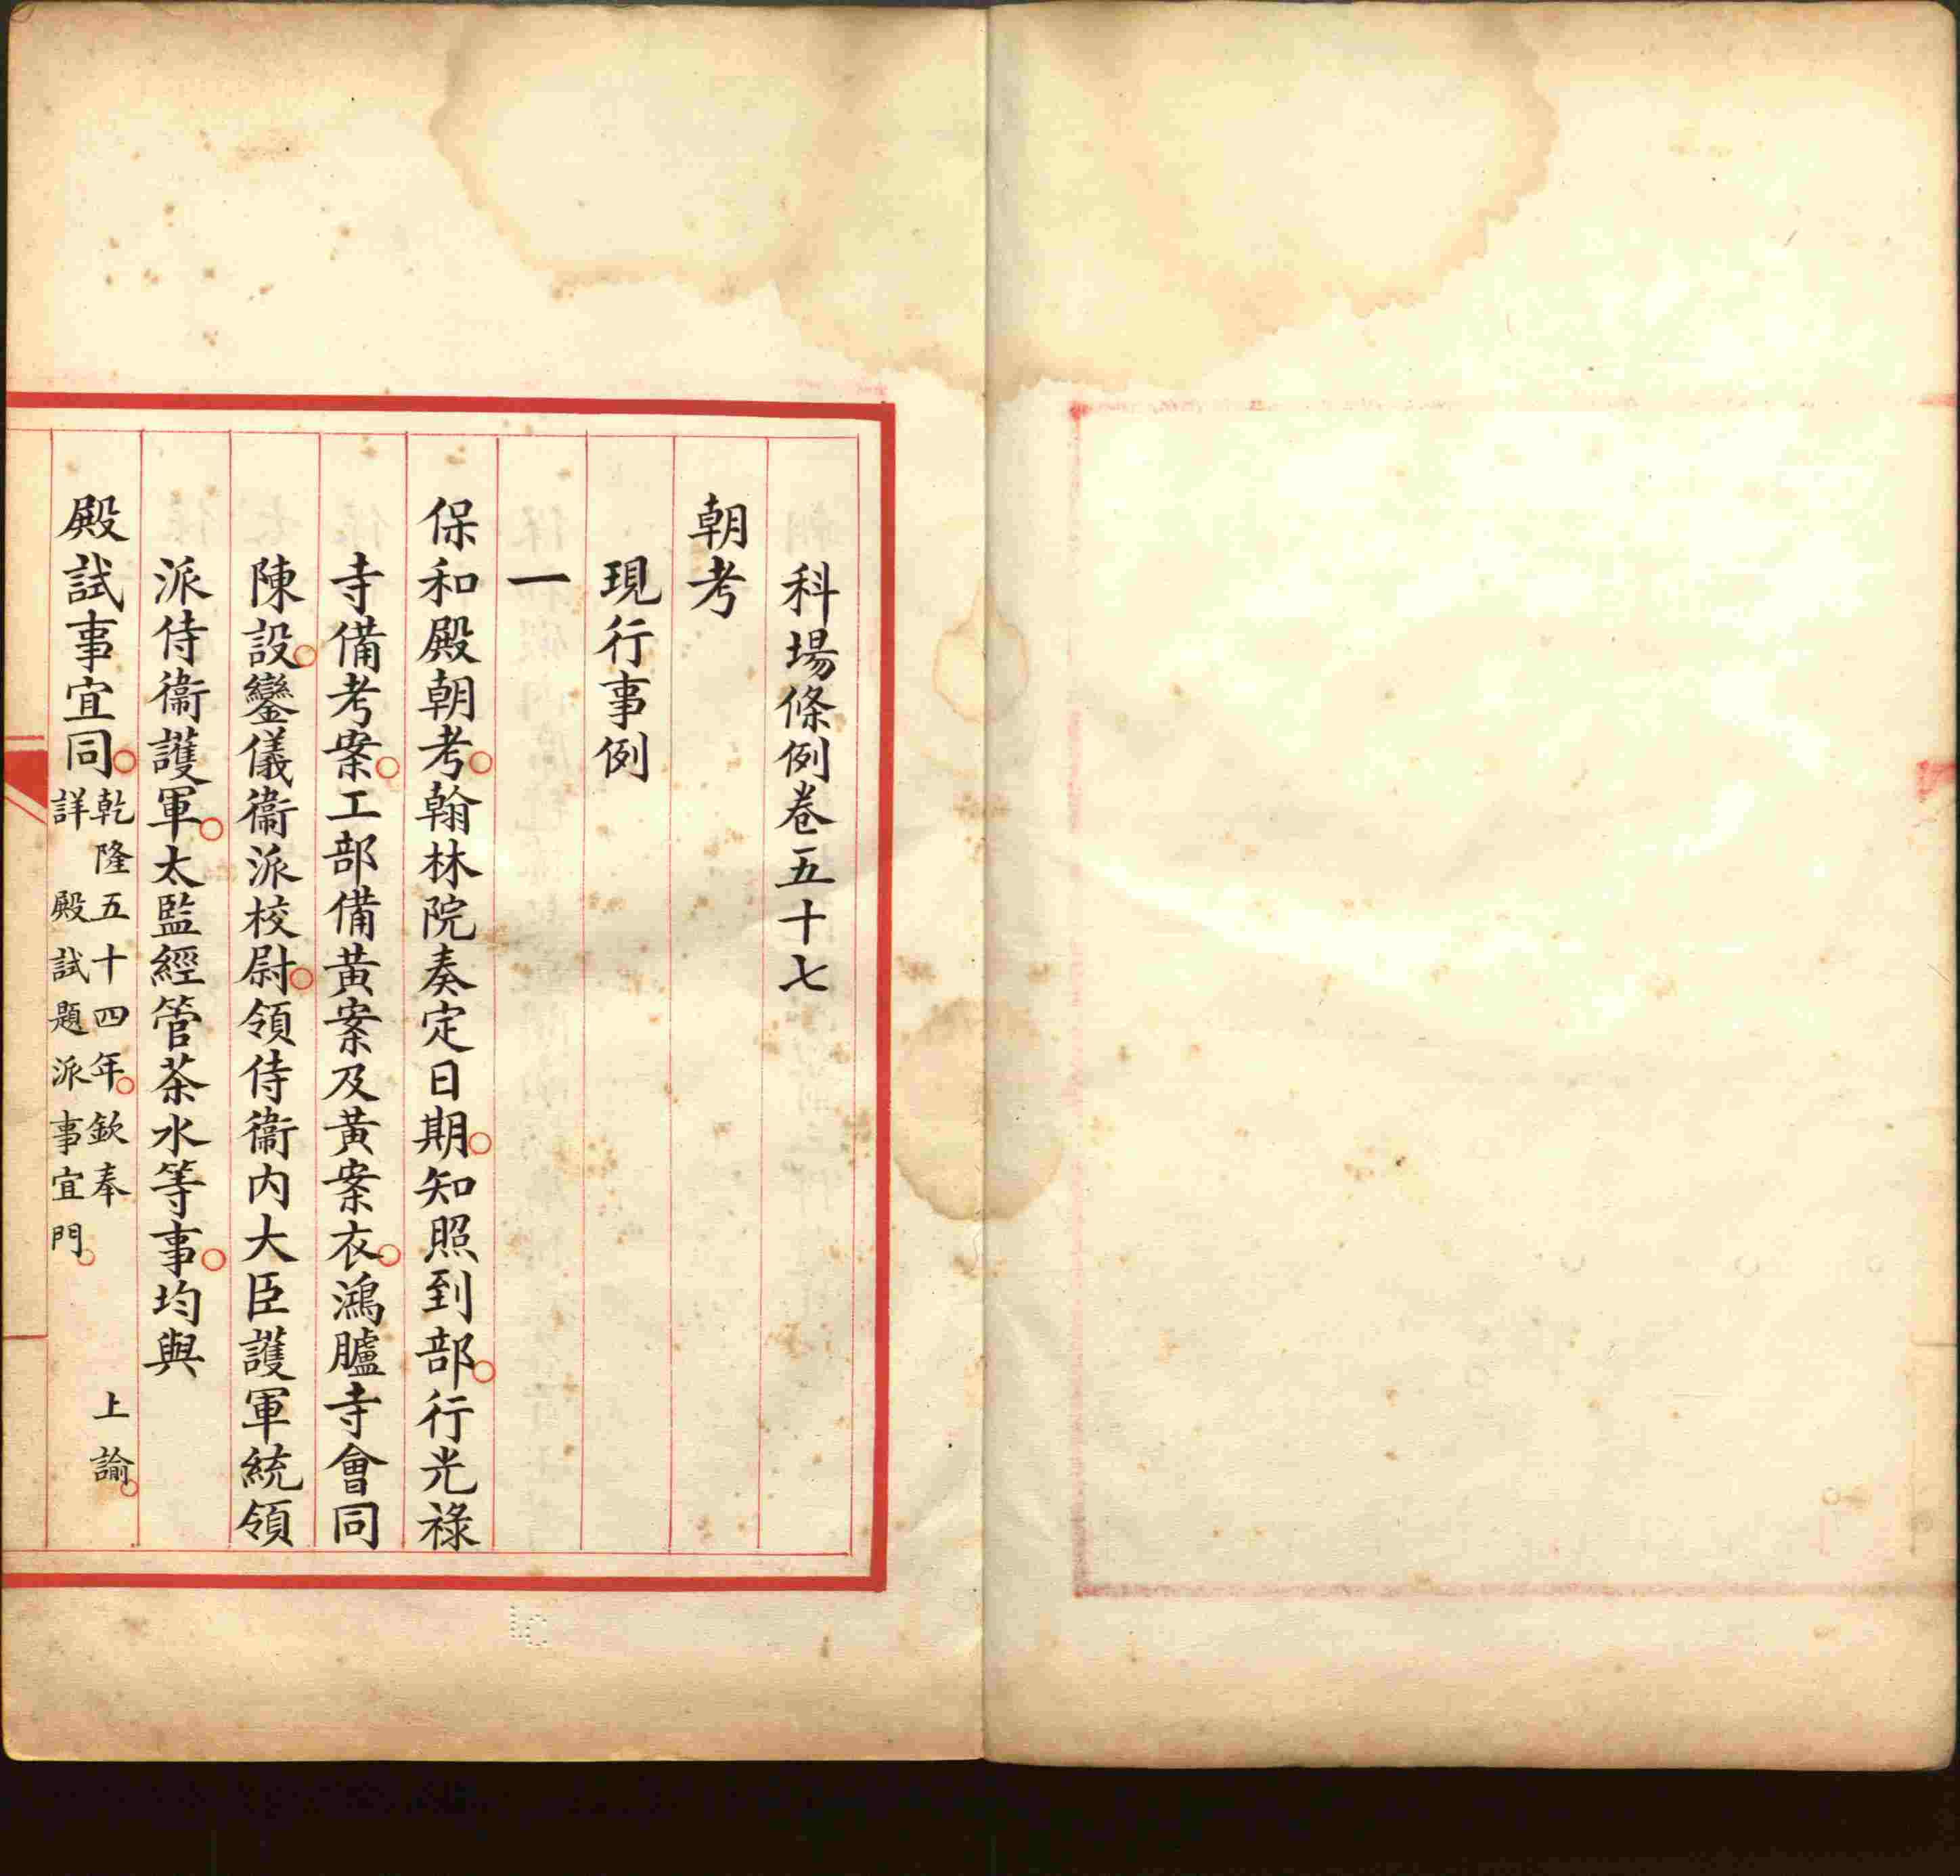 科場條例卷五十七
朝考
現行事例
一
保和殿朝考○翰林院奏定日期○知照到部○行光祿
寺備考案○工部備黃案及黃案衣○鴻臚寺會同
陳設○鑾儀衞派校尉○領侍衞内大臣護軍統領
派侍衞護軍○太監經管茶水等事○均與
殿試事宜同○乾隆五十四年○欽奉 上諭○
詳 殿試題派事宜門○